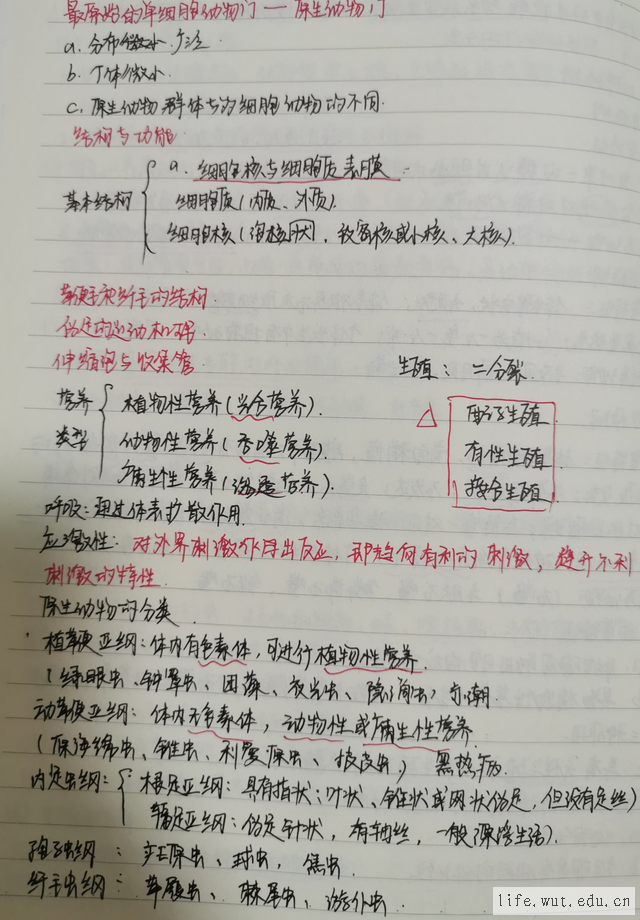 最原始的单细胞动物门——原生动物门
a. 分布微小、广泛
b. 个体微小.
c. 原生动物群体与多细胞动物的不同.
结构与功能
基本结构
a. 细胞核与细胞质表膜
细胞质(内质、外质).
细胞核(泡核状, 致密核或小核、大核).
鞭毛和纤毛的结构.
伪足的运动机理.
伸缩泡与收集管.
生殖: 二分裂.
营养类型
植物性营养(光合营养).
动物性营养(吞噬营养).
腐生性营养(渗透营养).
△
配子生殖
有性生殖
接合生殖
呼吸: 通过体表扩散作用.
应激性: 对外界刺激作出反应, 即趋向有利的刺激, 避开不利
刺激的特性.
原生动物的分类
植鞭亚纲: 体内有色素体, 可进行植物性营养.
(绿眼虫、钟罩虫、团藻、夜光虫、隐滴虫) 赤潮.
动鞭亚纲: 体内无色素体, 动物性或腐生性营养.
(原海绵虫、锥虫、利什原虫、披发虫) 黑热病.
内足虫纲:
根足亚纲: 具有指状、叶状、锥状或网状伪足, 但没有足丝)
辐足亚纲: 伪足针状, 有轴丝, 一般漂浮生活).
孢子虫纲: 疟原虫、球虫, 焦虫
纤毛虫纲: 草履虫、棘尾虫、游仆虫
life.wut.edu.cn